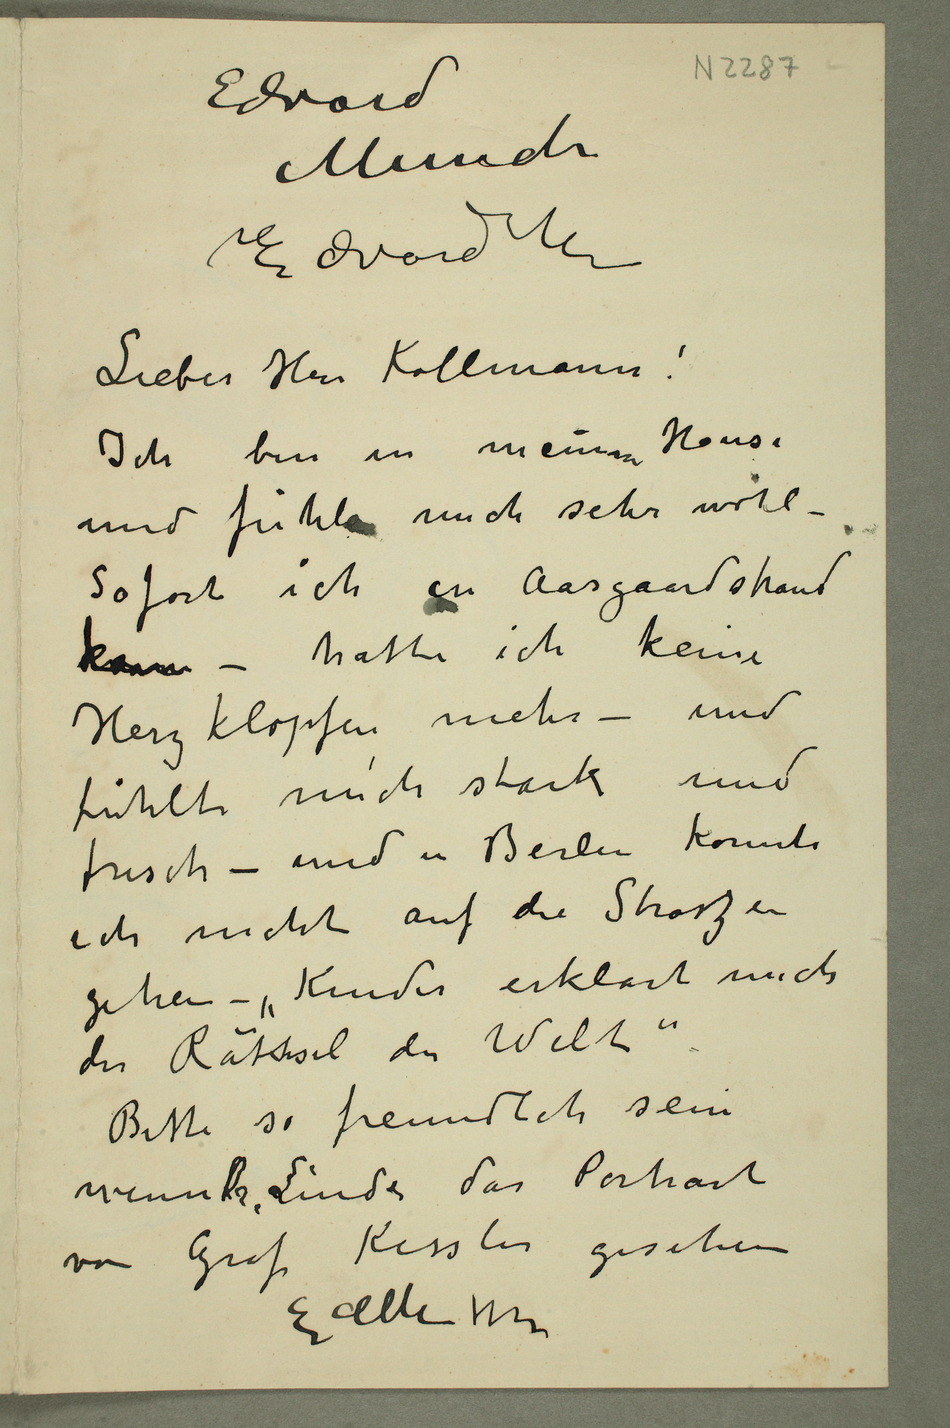 N 2287
Edvard
Munch
Edvard M
Lieber Herr Kollmann!
Ich bin in meinem Hause
und fühle mich sehr wohl –
Sofort ich in Aasgaardstrand
kam – hatte ich keine
Herzklopfen mehr – und
fühlte mich stark und
frisch – und in Berlin konnte
ich nicht auf die Straszen
gehen – „Kinder erklärt mich
der Räthsel der Welt“
Bitte so freundlich sein
wenn Dr. Linde das Portrait
von Graf Kessler gesehen